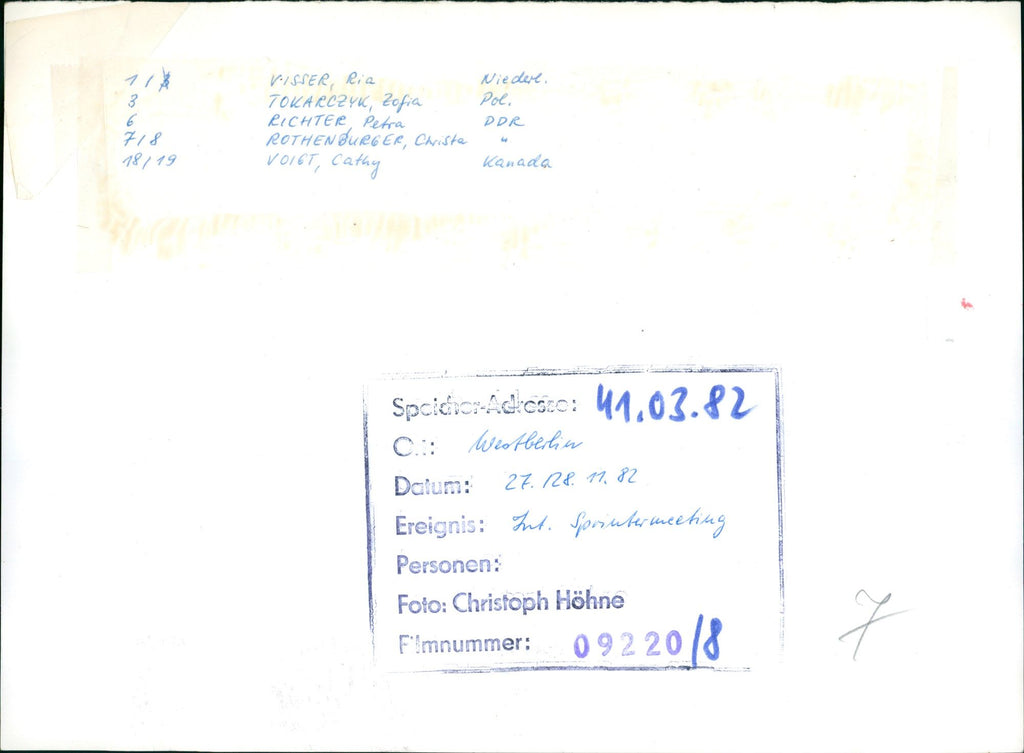 1/2 VISSER, Ria Niederl.
3 TOKARCZYK, Zofia Pol.
6 RICHTER, Petra DDR
7/8 ROTHENBURGER, Christa "
18/19 VOIGT, Cathy Kanada
Speicher-Adresse: 41.03.82
Ort: Westberlin
Datum: 27./28.11.82
Ereignis: Int. Sprintermeeting
Personen:
Foto: Christoph Höhne
Filmnummer: 09220/8
7